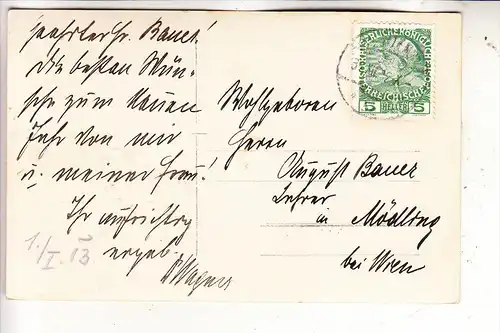 Geehrter Hr. Bauer!
Die besten Wün-
sche zum Neuen
Jahr von mir
u. meiner Frau!
Ihr aufrichtig
ergeb.
Wagner
1./I. 13
Wohlgeboren
Herrn
August Bauer
Lehrer
in Mödling
bei Wien
5 HELLER 5